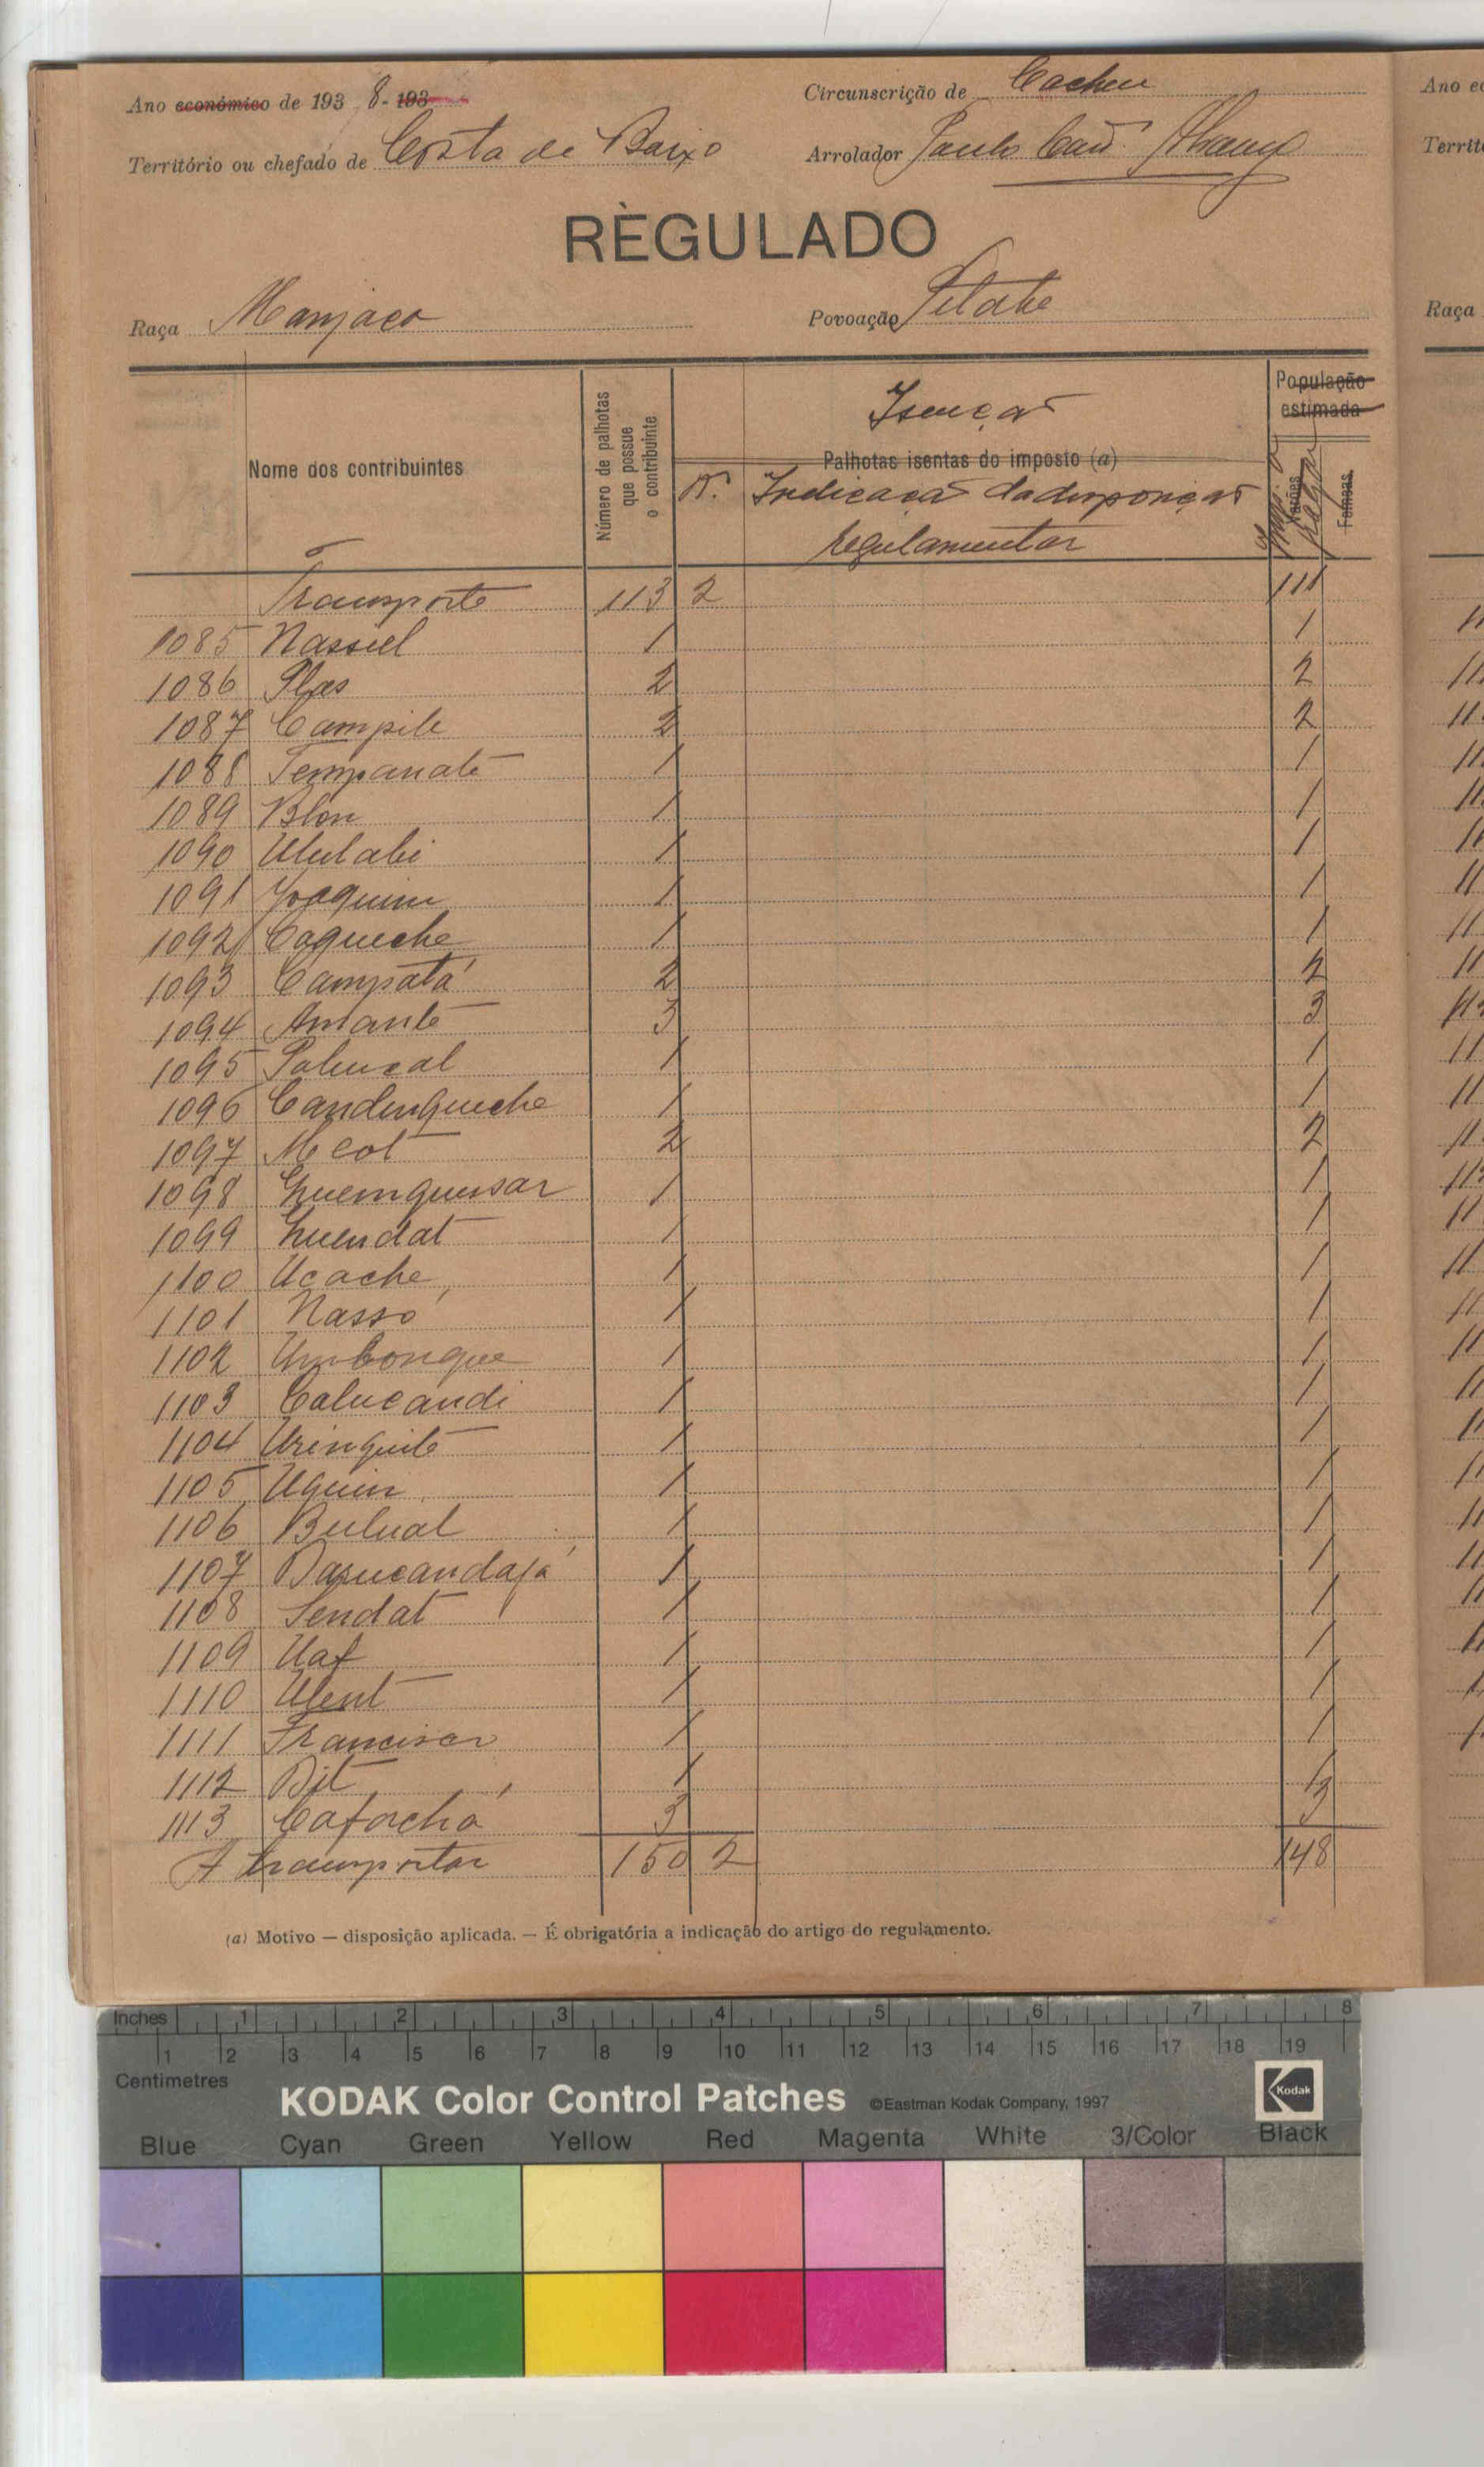 Ano económico de 193 8-193
Circunscrição de Cacheu
Território ou chefado de Costa de Baixo
Arrolador Paulo
RÈGULADO
Raça Manjaco
Povoação Petabe
Nome dos contribuintes
Número de palhotas que possue o contribuinte
Isenção
Palhotas isentas do imposto (a)
N. Indicação da disposição
regulamentar
População estimada
Varões
Femeas
Transporte 113 2 111
1085 Nassiel 1 1
1086 Plas 2 2
1087 Campile 2 2
1088 Tempanate 1 1
1089 Blon 1 1
1090 Ululabi 1 1
1091 Joaquim 1 1
1092 Caqueche 1 1
1093 Campatá 2 2
1094 Amante 3 3
1095 Palucal 1 1
1096 Candinqueche 1 1
1097 Mcot 2 2
1098 Guemquessar 1 1
1099 Guendat 1 1
1100 Ucache 1 1
1101 Nassó 1 1
1102 Umbonque 1 1
1103 Calucandi 1 1
1104 Urinquite 1 1
1105 Uquin 1 1
1106 Bulual 1 1
1107 Dasucandajá 1 1
1108 Sendat 1 1
1109 Uaf 1 1
1110 Ulent 1 1
1111 Francisco 1 1
1112 Djt 1 1
1113 Cafachá 3 3
A transportar 150 2 148
(a) Motivo — disposição aplicada. — É obrigatória a indicação do artigo do regulamento.
Ano ec
Territó
Raça
Inches 1 2 3 4 5 6 7 8
1 2 3 4 5 6 7 8 9 10 11 12 13 14 15 16 17 18 19
Centimetres
KODAK Color Control Patches ©Eastman Kodak Company, 1997 Kodak
Blue Cyan Green Yellow Red Magenta White 3/Color Black